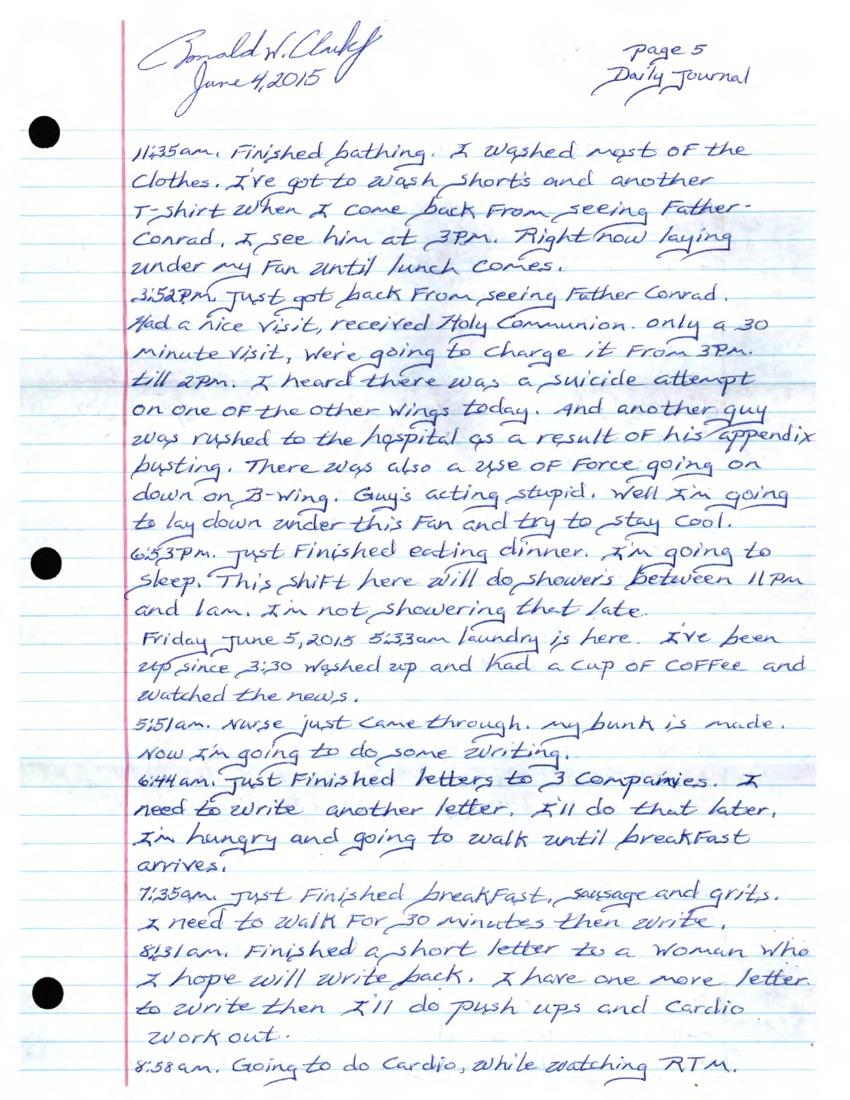 Ronald W. Clark Jr
June 4, 2015
Page 5
Daily Journal
11:35am. Finished bathing. I washed most of the
clothes. I've got to wash short's and another
T-shirt when I come back from seeing Father-
Conrad. I see him at 3PM. Right now laying
under my fan until lunch comes.
3:52PM. Just got back from seeing Father Conrad.
Had a nice visit, received Holy Communion. only a 30
minute visit, we're going to charge it from 3PM.
till 2PM. I heard there was a suicide attempt
on one of the other wings today. And another guy
was rushed to the hospital as a result of his appendix
busting. There was also a use of force going on
down on B-wing. Guy's acting stupid. Well I'm going
to lay down under this fan and try to stay cool.
6:53PM. Just finished eating dinner. I'm going to
sleep. This shift here will do shower's between 11PM
and 1am. I'm not showering that late.
Friday June 5, 2015 5:33am laundry is here. I've been
up since 3:30 washed up and had a cup of coffee and
watched the news.
5:51am. Nurse just came through. my bunk is made.
Now I'm going to do some writing.
6:44am. Just finished letters to 3 Companies. I
need to write another letter. I'll do that later.
I'm hungry and going to walk until breakfast
arrives.
7:35am. Just finished breakfast, sausage and grits.
I need to walk for 30 minutes then write.
8:31am. Finished a short letter to a woman who
I hope will write back. I have one more letter
to write then I'll do push ups and cardio
work out.
8:58am. Going to do Cardio, while watching RTM.